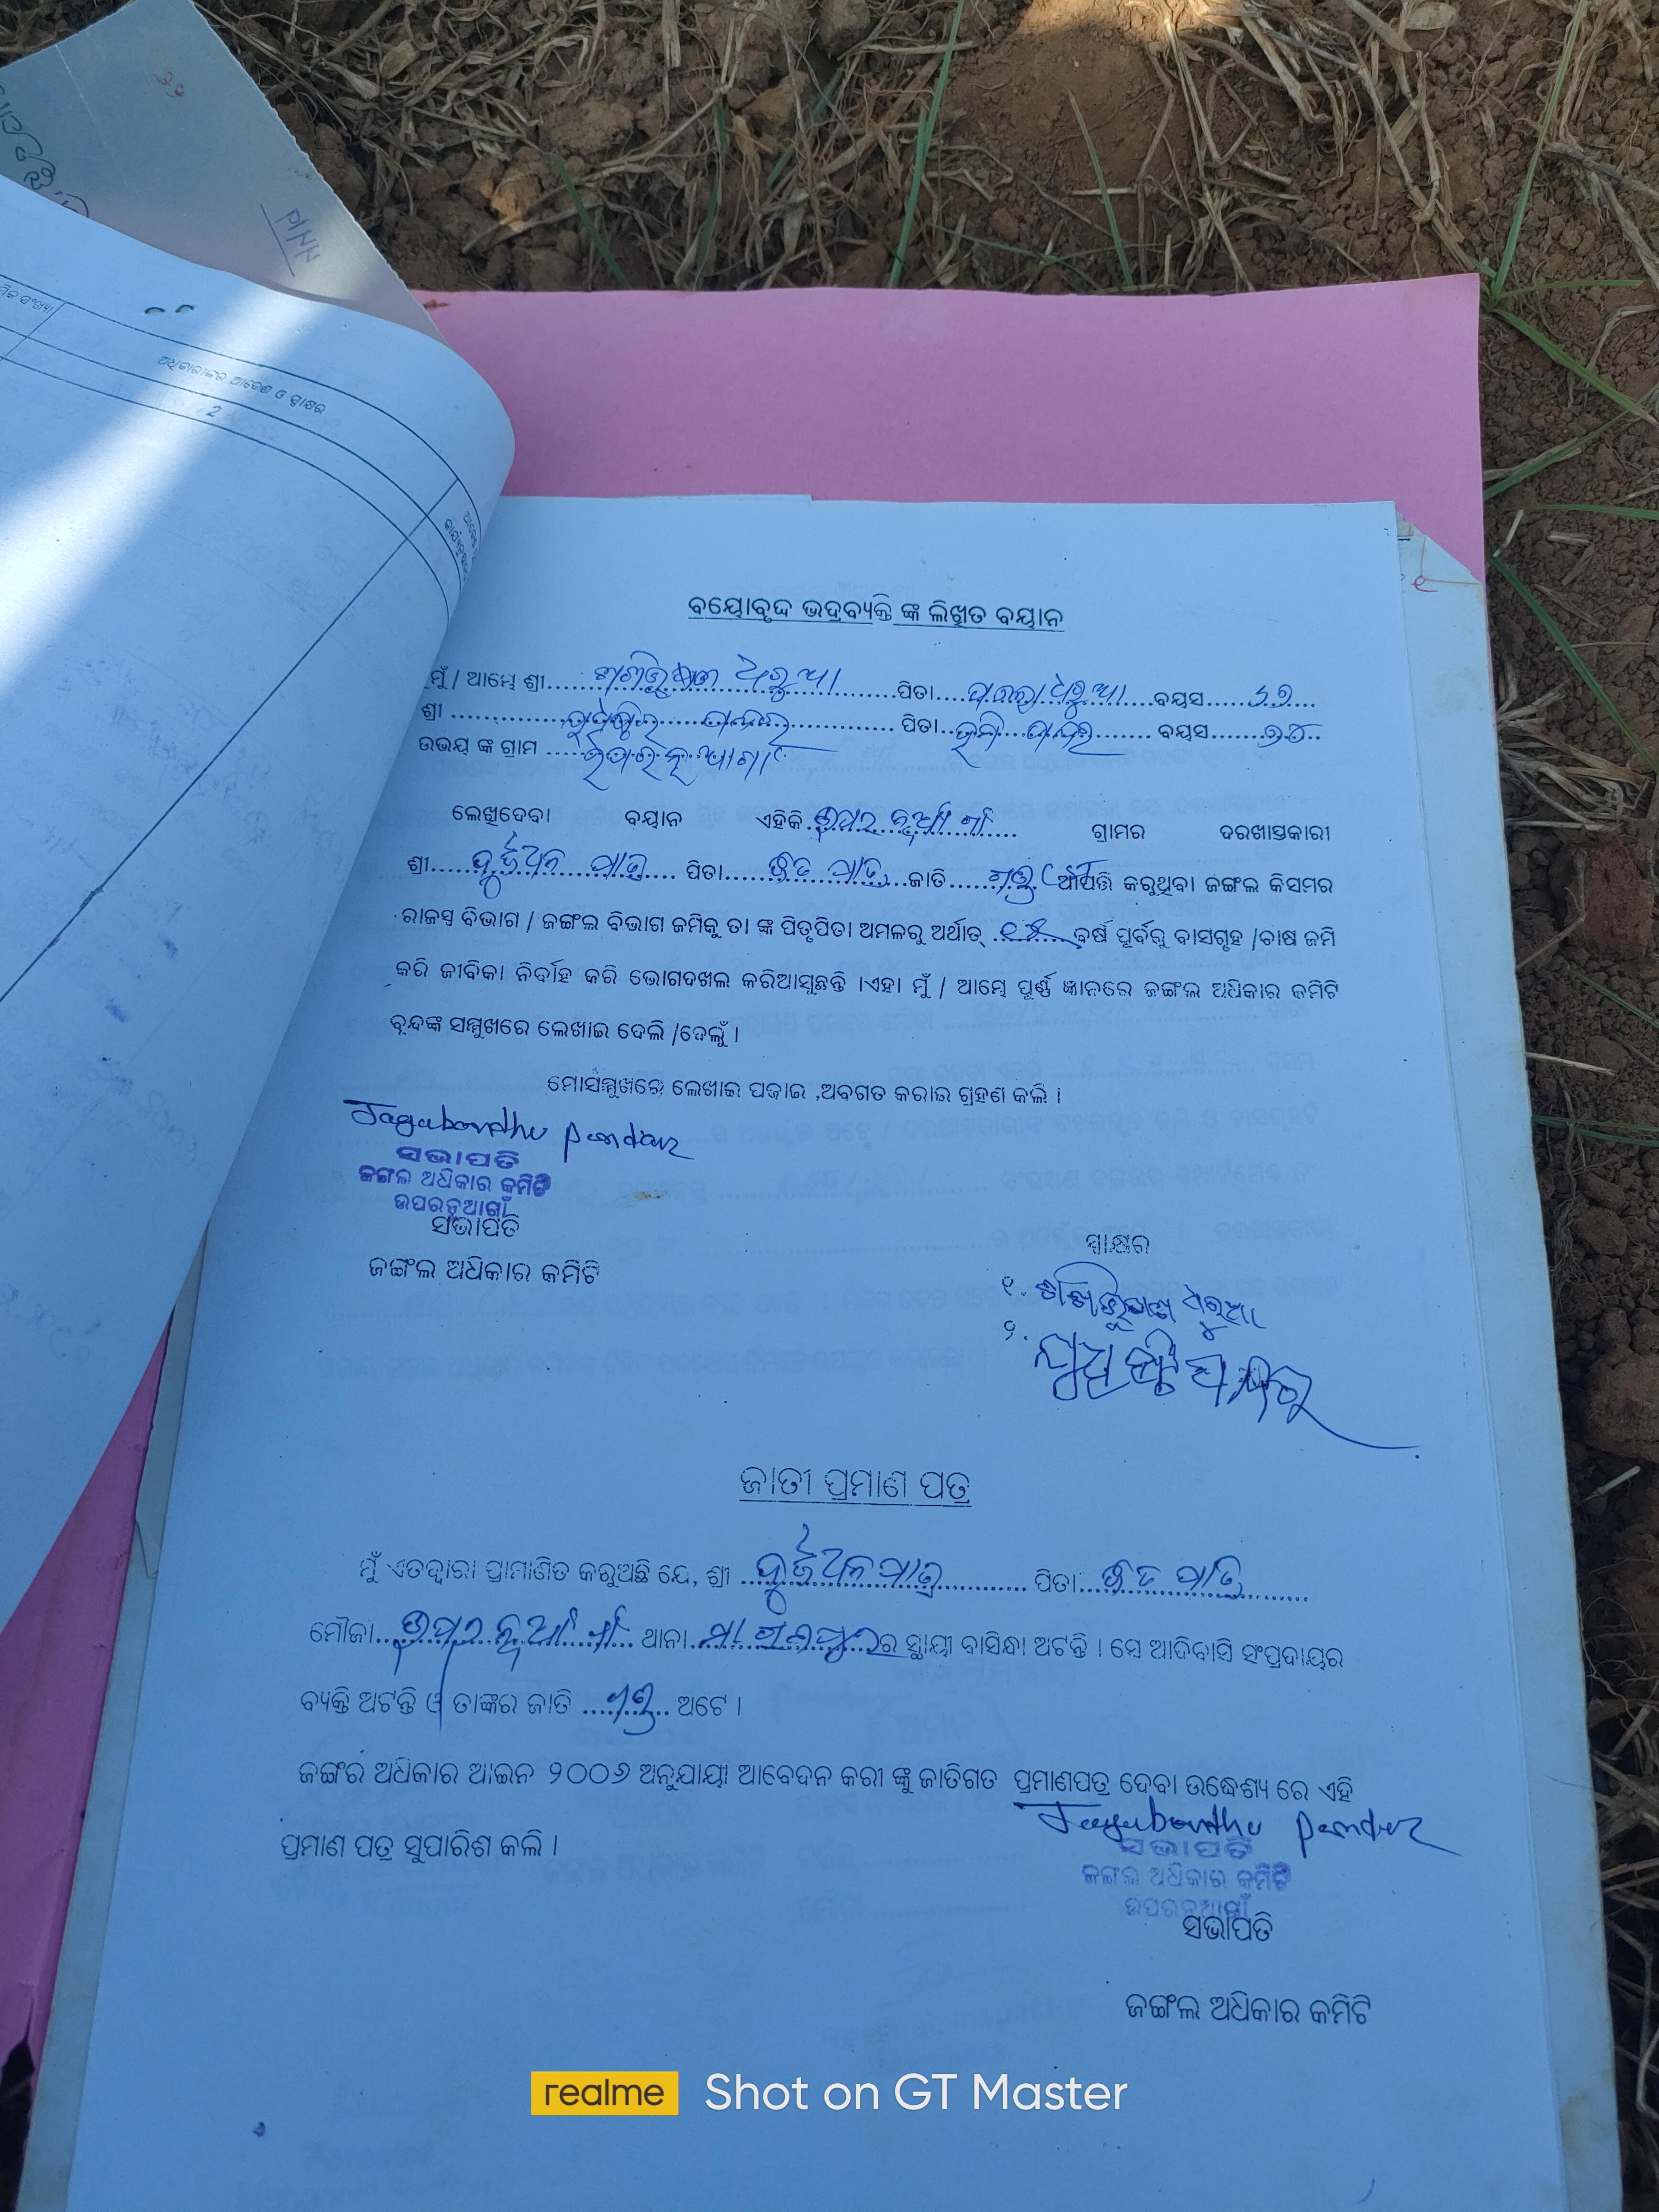 ଅଧିକାରୀଙ୍କର ଆଦେଶ ଓ ସ୍ୱାକ୍ଷର
2
ବୟୋବୃଦ୍ଧ ଭଦ୍ରବ୍ୟକ୍ତି ଙ୍କ ଲିଖିତ ବୟାନ
ମୁଁ / ଆମ୍ଭେ ଶ୍ରୀ ଧରୁଆ ପିତା ଧରୁଆ ବୟସ
ଶ୍ରୀ ଯୁଧିଷ୍ଠିର ପିତା ବୟସ ୭୦
ଉଭୟ ଙ୍କ ଗ୍ରାମ
ଲେଖିଦେବା ବୟାନ ଏହିକି ଉପର ନୂଆଗାଁ ଗ୍ରାମର ଦରଖାସ୍ତକାରୀ
ଶ୍ରୀ ମାଝୀ ପିତା ମାଝୀ ଜାତି ଗଣ୍ଡ ଆପତ୍ତି କରୁଥିବା ଜଙ୍ଗଲ କିସମର
ରାଜସ୍ବ ବିଭାଗ / ଜଙ୍ଗଲ ବିଭାଗ ଜମିକୁ ତା ଙ୍କ ପିତୃପିତା ଅମଳରୁ ଅର୍ଥାତ୍ ବର୍ଷ ପୂର୍ବରୁ ବାସଗୃହ /ଚାଷ ଜମି
କରି ଜୀବିକା ନିର୍ବାହ କରି ଭୋଗଦଖଲ କରିଆସୁଛନ୍ତି ।ଏହା ମୁଁ / ଆମ୍ଭେ ପୂର୍ଣ୍ଣ ଜ୍ଞାନରେ ଜଙ୍ଗଲ ଅଧିକାର କମିଟି
ବୃନ୍ଦଙ୍କ ସମ୍ମୁଖରେ ଲେଖାଇ ଦେଲି /ଦେଲୁଁ ।
ମୋସମ୍ମୁଖରେ ଲେଖାଇ ପଢାଇ ,ଅବଗତ କରାଇ ଗ୍ରହଣ କଲି ।
Jagabandhu
ସଭାପତି
ଜଙ୍ଗଲ ଅଧିକାର କମିଟି
ଉପରନୂଆଗାଁ
ସଭାପତି
ଜଙ୍ଗଲ ଅଧିକାର କମିଟି
ସ୍ୱାକ୍ଷର
୧. ଧରୁଆ
୨. ଯୁଧିଷ୍ଠିର
ଜାତୀ ପ୍ରମାଣ ପତ୍ର
ମୁଁ ଏତଦ୍ୱାରା ପ୍ରାମାଣିତ କରୁଅଛି ଯେ, ଶ୍ରୀ ମାଝୀ ପିତା ମାଝୀ
ମୌଜା ଉପର ନୂଆଗାଁ ଥାନା ର ସ୍ଥାୟୀ ବାସିନ୍ଧା ଅଟନ୍ତି । ସେ ଆଦିବାସି ସଂପ୍ରଦାୟର
ବ୍ୟକ୍ତି ଅଟନ୍ତି ଓ ତାଙ୍କର ଜାତି ଗଣ୍ଡ ଅଟେ ।
ଜଙ୍ଗର ଅଧିକାର ଆଇନ ୨୦୦୬ ଅନୁଯାୟୀ ଆବେଦନ କରୀ ଙ୍କୁ ଜାତିଗତ ପ୍ରମାଣପତ୍ର ଦେବା ଉଦ୍ଧେଶ୍ୟ ରେ ଏହି
ପ୍ରମାଣ ପତ୍ର ସୁପାରିଶ କଲି ।
Jagabandhu
ସଭାପତି
ଜଙ୍ଗଲ ଅଧିକାର କମିଟି
ଉପରନୂଆଗାଁ
ସଭାପତି
ଜଙ୍ଗଲ ଅଧିକାର କମିଟି
realme Shot on GT Master